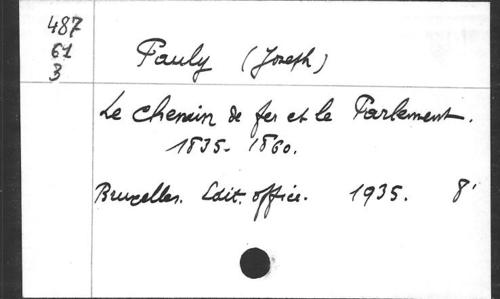 487
61
3
Pauly (Joseph)
Le chemin de fer et le Parlement.
1835-1860.
Bruxelles. Edit. office. 1935. 8°